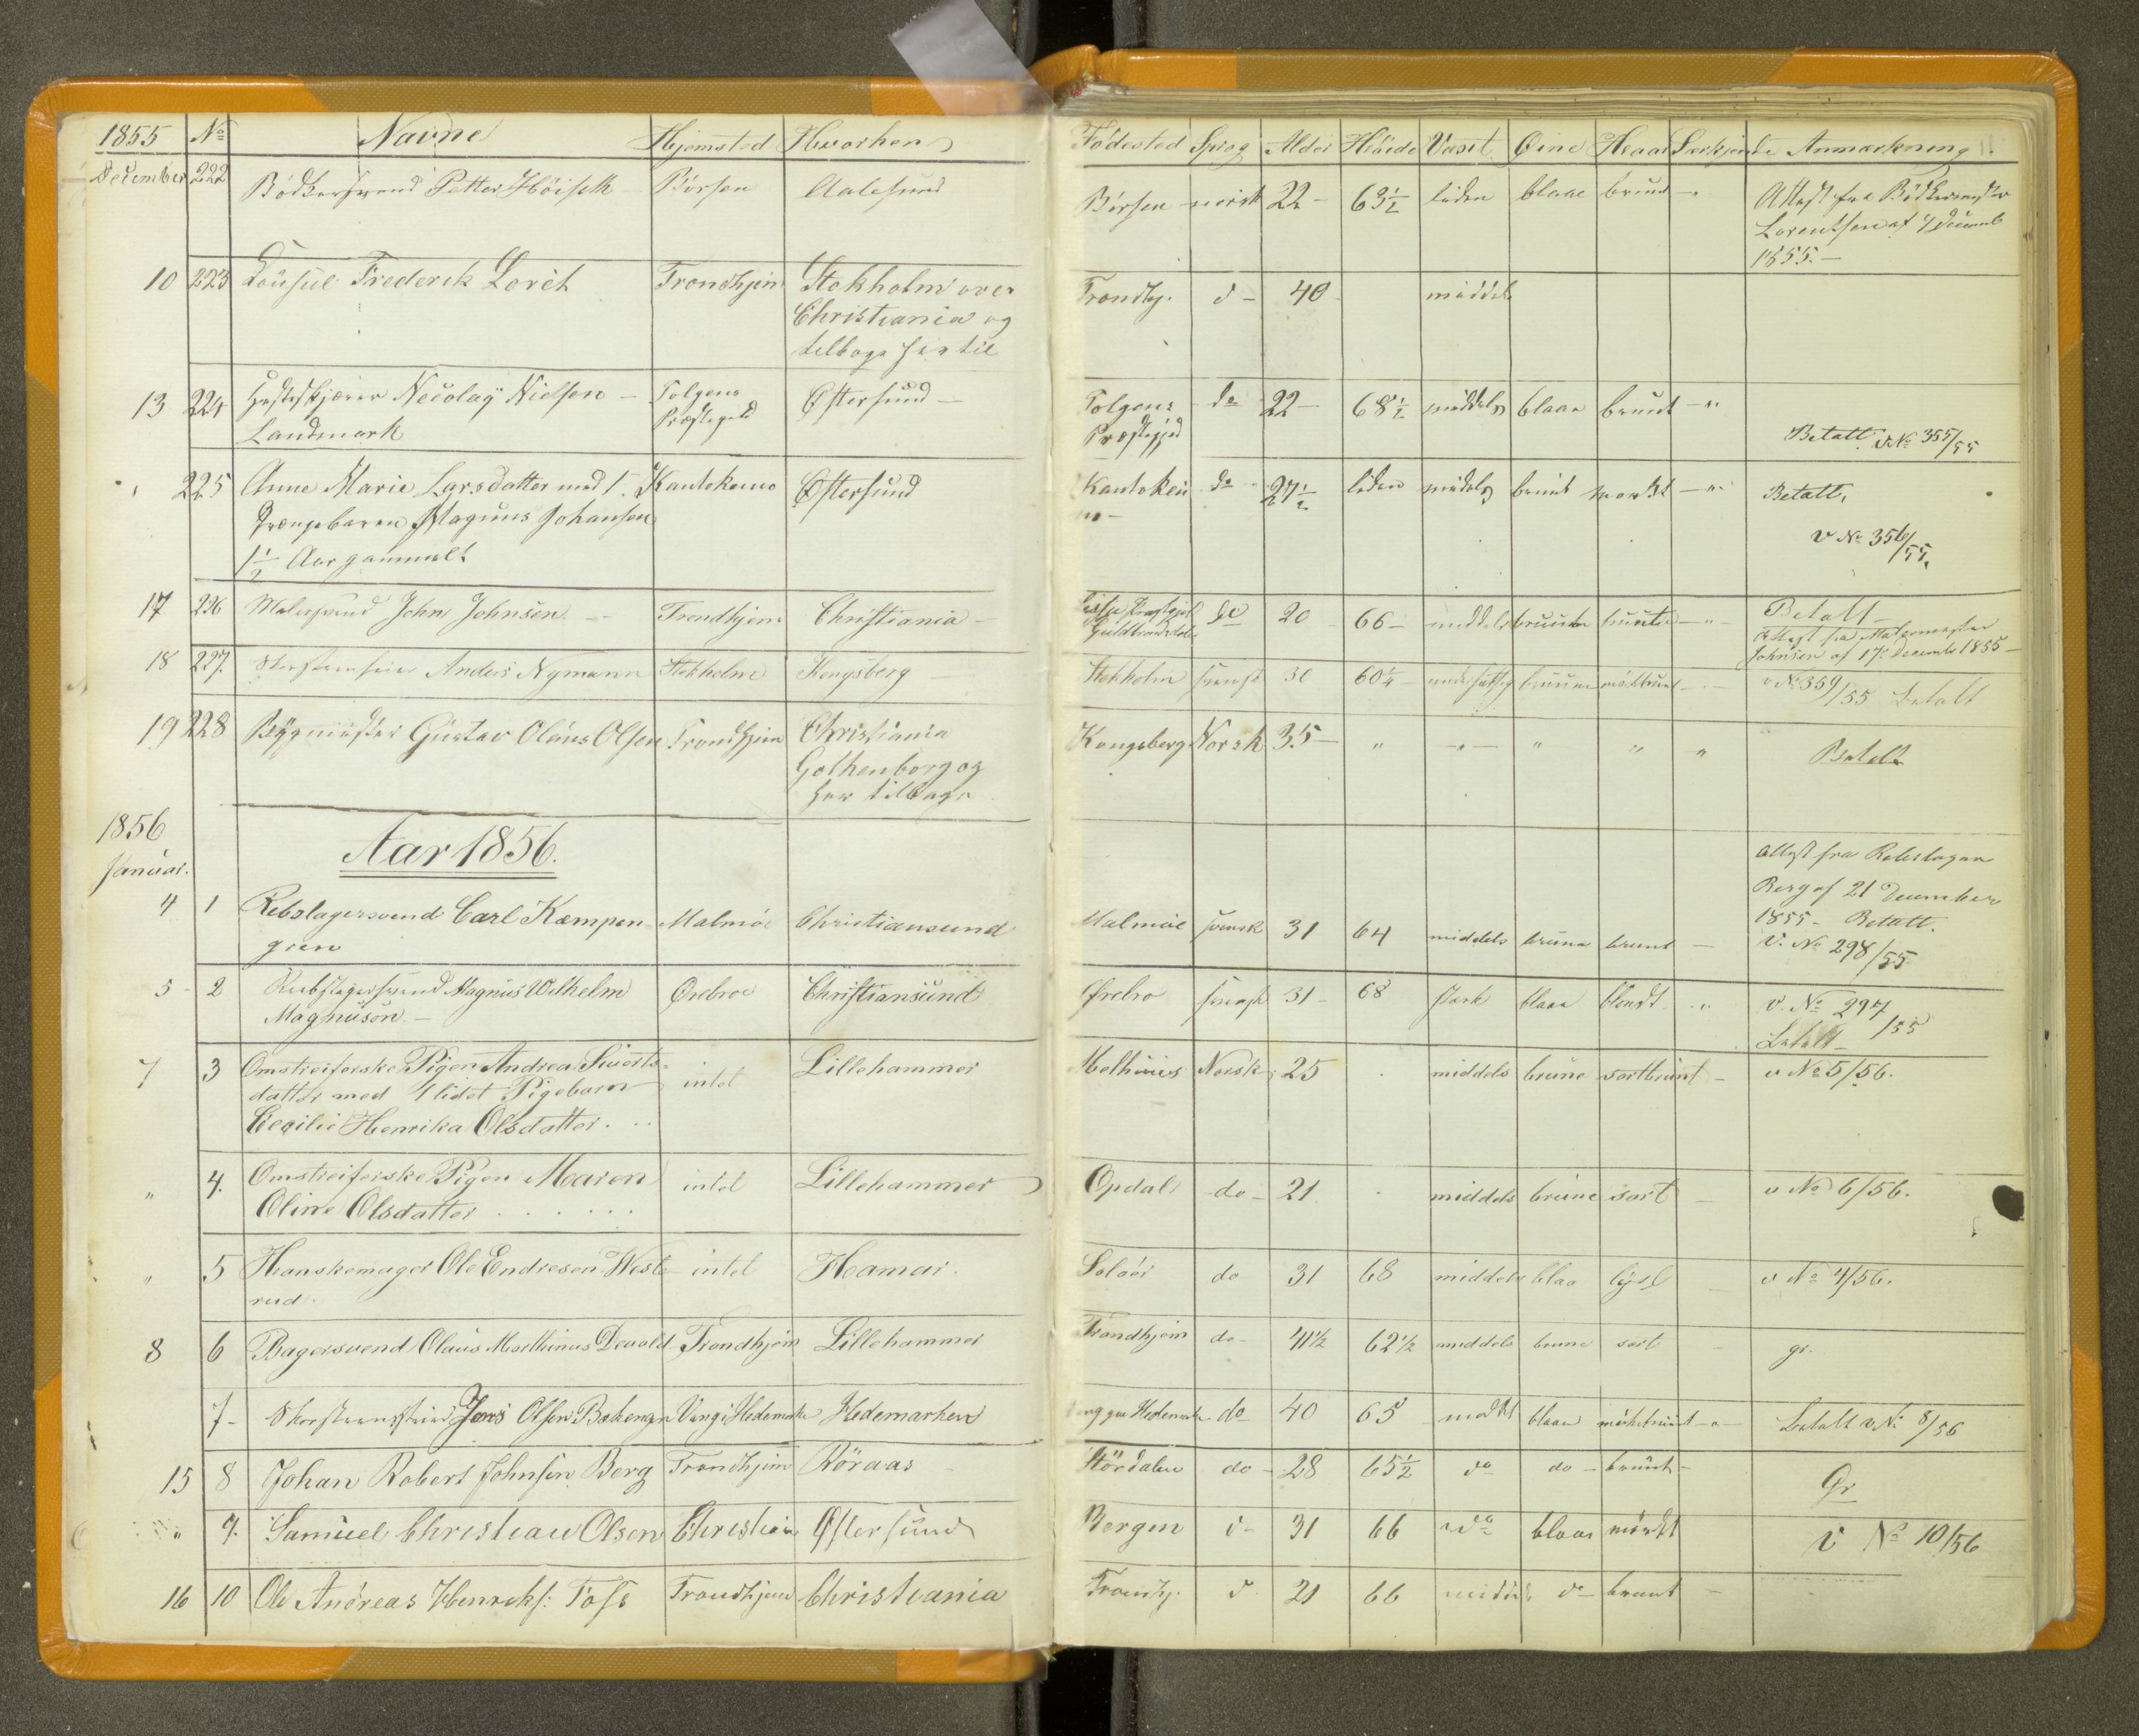 1855 No Navne Hjemsted Hvorhen Födested Sprog Alder Höide Vaext Øine Haar Særkjende Anmærkning
December 222 Bödkersvend Petter Höiseth Börsen Aalesund Börsen norsk 22 - 63½ liden blaae brunt - Attest fra Bödkermester
Lorentsen af 4 Decemb
1855. -
10 223 Consul Frederik Lorck Trondhjem Stokholm over Trondhj. do - 40 middels
Christiania og
tilbage her til
13 224 Necolay Nielsen - Tolgens Østersund - Tolgens do 22 - 68½ middels blaae brunt - "
Landmark Præstegjeld Præstegjeld Betalt v No 355/55
" 225 Anne Marie Larsdatter med 1. Kautokeino Østersund Kautokei do 27½ liden middels brunt mørkt - " Betalt,
Drængebarn Magnus Johansen no - v No 356/55.
1½ Aar gammelt
17 226 Malersvend John Johnsen - Trondhjem Christiania - Præstegjeld do 20 66 - middels bruune bruunt - " - Betalt -
Guldbrandsdalen Attest fra Malermester
Johnsen af 17de Decemb 1855 -
18 227. Skorsteensfeier Anders Nymann Stokholm Kongsberg - Stokholm svensk 30 60¼ undersætsig bruune mörkbrunt - v No 359/55 Betalt
19 228 Bygmester Gustav Olaus Olsen Trondhjem Christiania Kongsberg Norsk 35 - " - " - " " " Betalt
Gothenborg og
her tilbage
1856
Januar. Aar 1856. Attest fra Rebslager
Berg af 21 December
4 1 Rebslagersvend Carl Kæmpen- Malmöe Christiansund Malmöe svensk 31 64 middels brune brunt - 1855 - Betalt.
gren V. No 298/55.
5 - 2 Reebslagersvend Magnus Wilhelm Ørebroe Christiansund Ørebro svensk 31 - 68 stærk blaae blondt " v. No 297/55
Magnuson - Betalt -
7 3 Omstreiferske Pigen Andrea Siverts- intet Lillehammer Melhuus Norsk 25 middels brune sortbrunt - v No 5/56.
datter med 1 lidet Pigebarn
Cecilie Henrika Olsdatter.
" 4. Omstreiferske Pigen Maren intet Lillehammer Opdal do - 21 middels brune sort - v No 6/56.
Oline Olsdatter . . . . . .
" 5 Hanskemager Ole Endresen West- intet Hamar. Soløer do 31 68 middels blaa lyst v No 4/56.
rud.
8 6 Bagersvend Olaus Marthinus Devold Trondhjem Lillehammer Trondhjem do - 41½ 62½ middels brune sort - gr.
7 - Jens Olsen Bakengen Vang i Hedemarken Hedemarken Vang paa Hedemarken do 40 65 middel blaae mörkebrunt - " - Betalt v No 8/56
15 8 Johan Robert Johnsen Berg Trondhjem Röraas Stördalen do - 28 65½ do do - brunt - Gr
" 9. Samuel Christian Olsen Christiania Østersund Bergen do - 31 66 do blaae mörkt v No 10/56
16 10 Ole Andreas Henriks: Foss Trondhjem Christiania Trondhj. do 21 66 middels do - brunt -